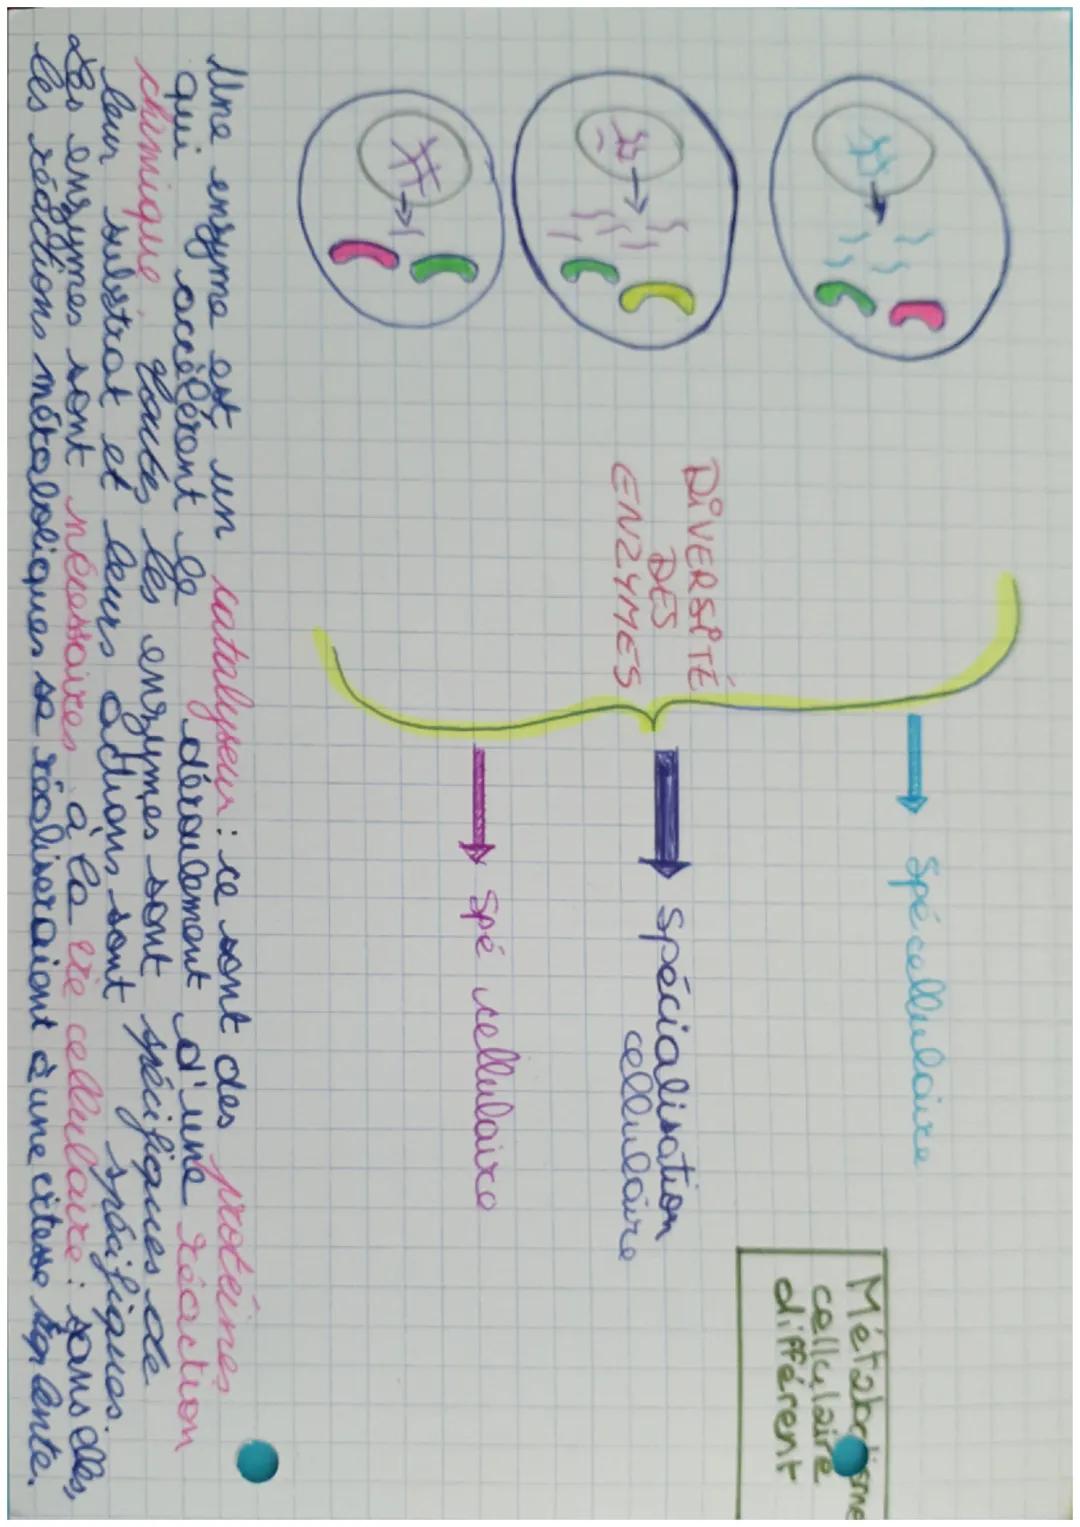 Spé cellulaire
DIVERSITÉ
DES
ENZYMES
Spécialisation
cellulaire
Spé cellulaire
Métabolisme
cellulaire
différent
Une enzyme est un catalyseur : ce sont des protéines
qui accélérant le déroulement d'une réaction
chimique. Toutes les enzymes sont spécifiques de
leur substrat et leurs actions sont spécifiques.
Les enzymes sont nécessaires à la vie cellulaire : sans elles,
les réactions métaboliques se réaliseraient à une vitesse lente.